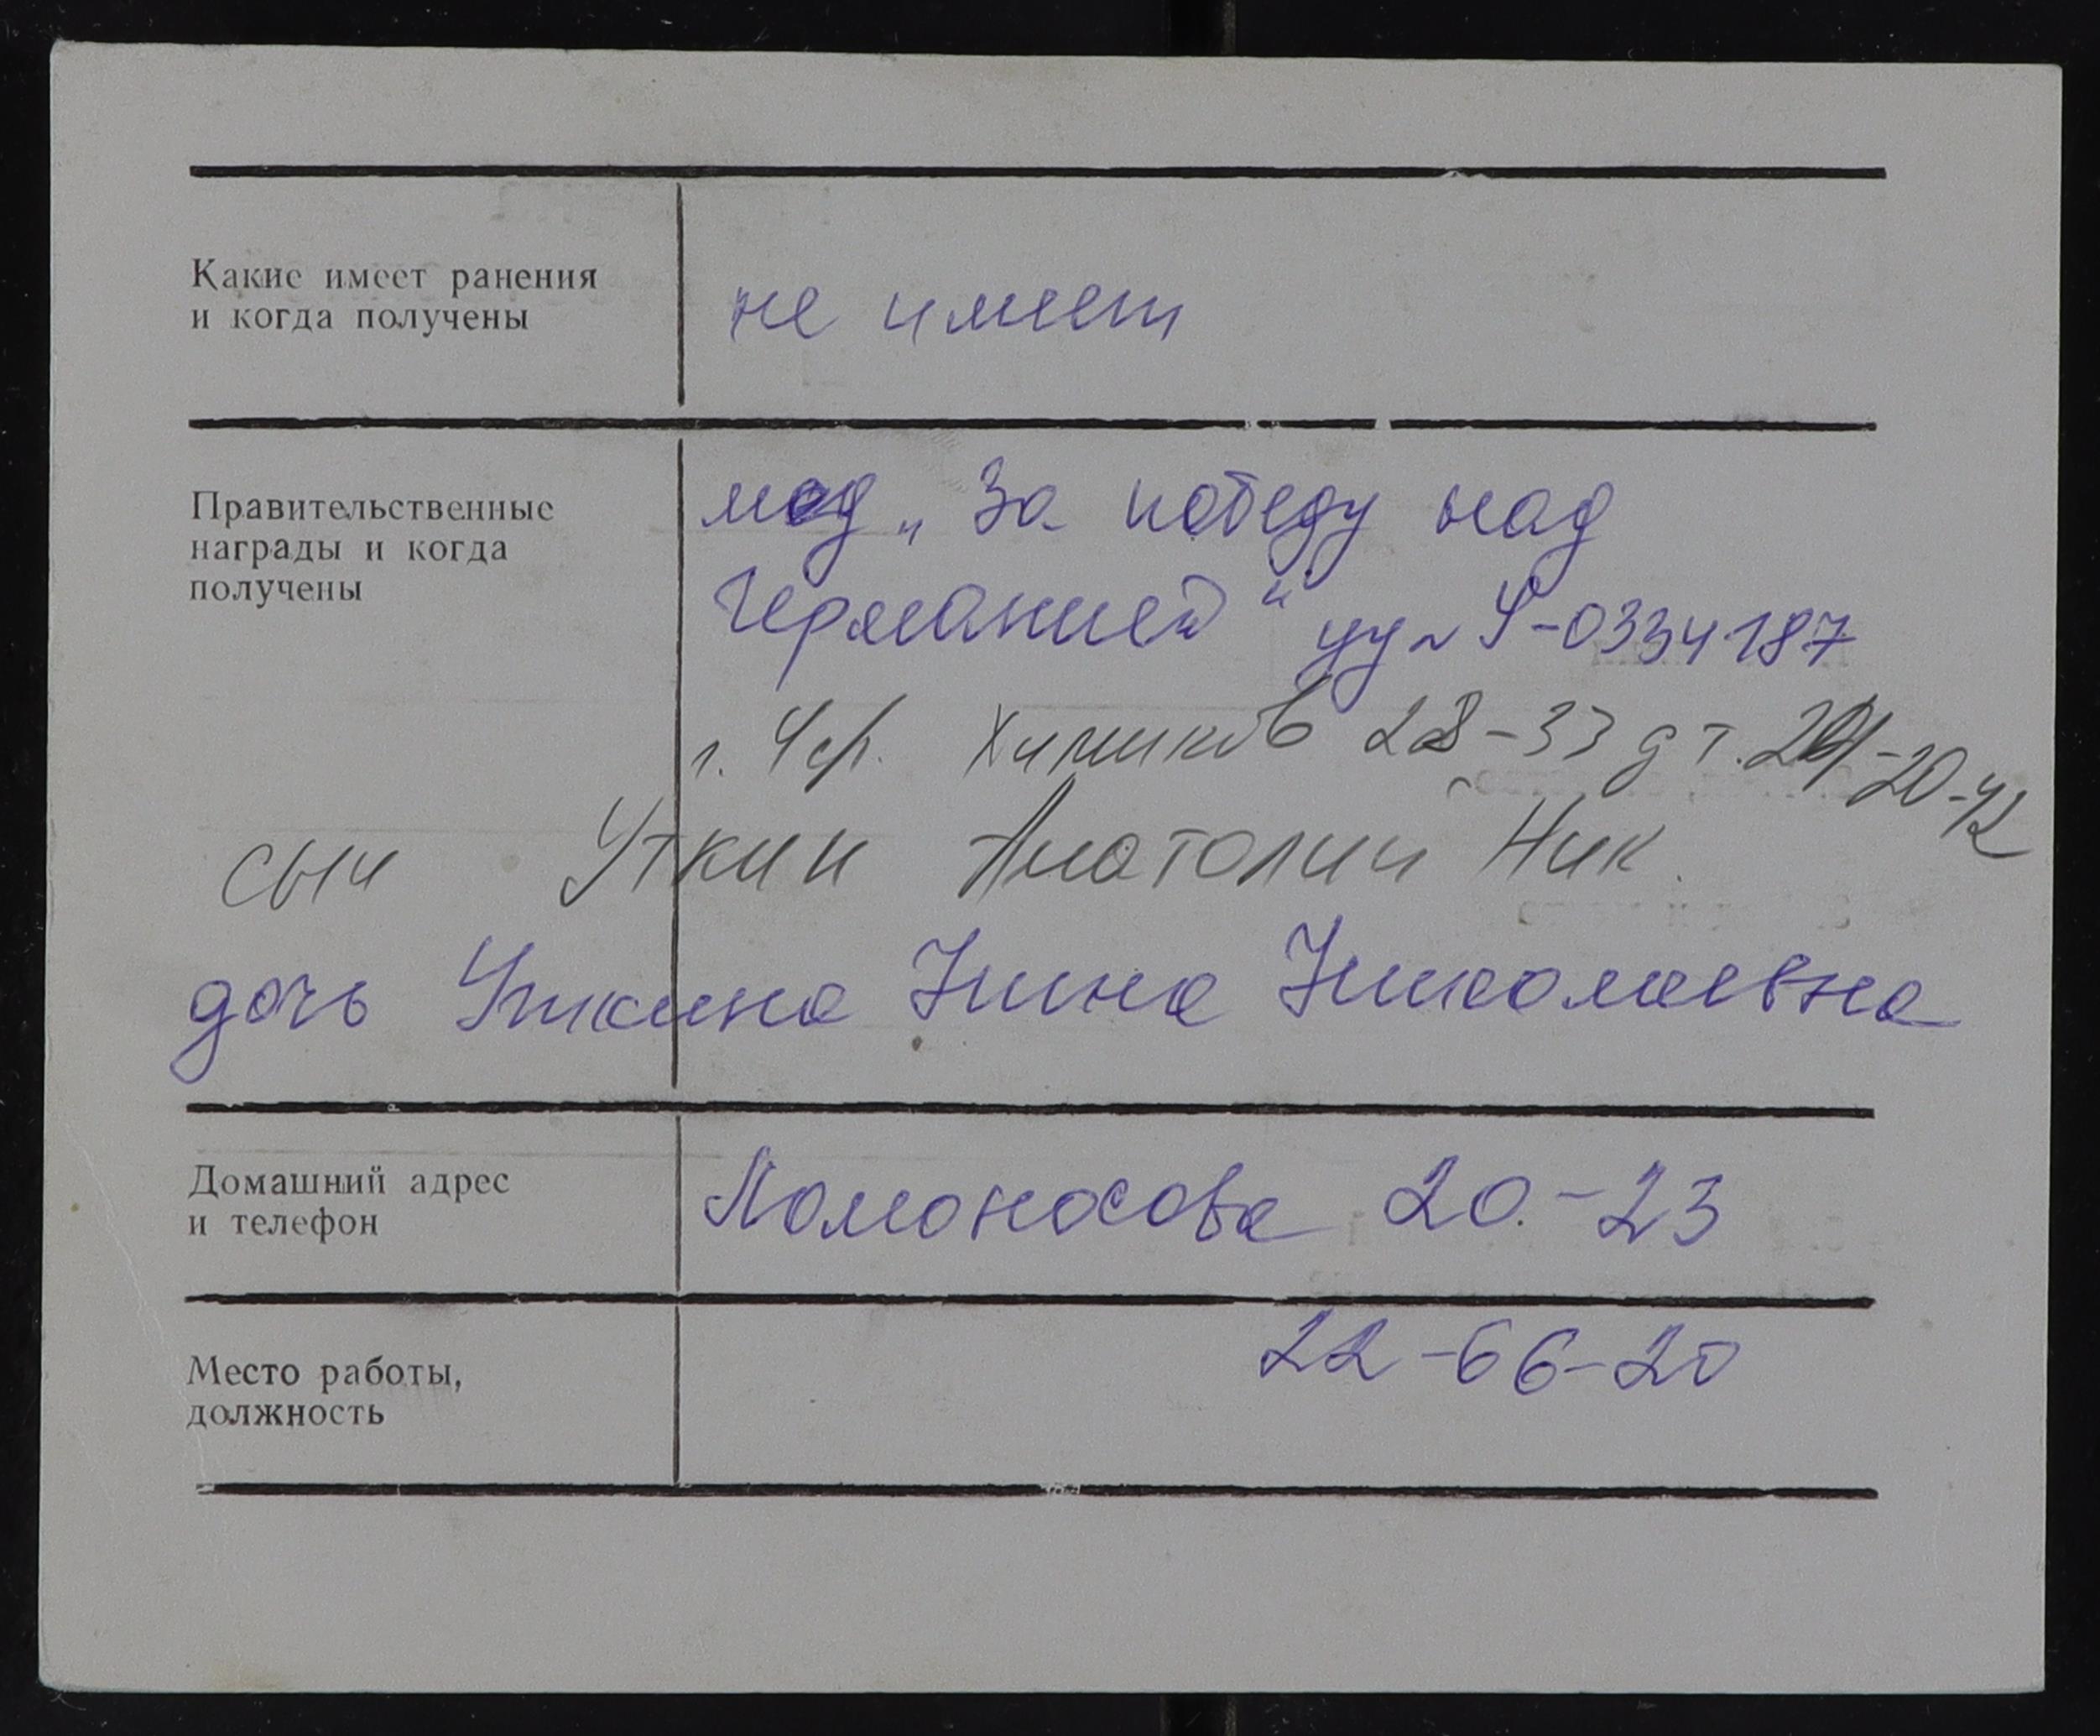 Какие имеет ранения
и когда получены
не имеет
Правительственные
награды и когда
получены
мед „За победу над
Германией“ уд № Ф-0334187
г. Чер. Химиков 28-33 д т. 20-42
сын Уткин Анатолий Ник.
дочь Уткина Нина Николаевна
Домашний адрес
и телефон
Ломоносова 20-23
Место работы,
должность
22-66-20